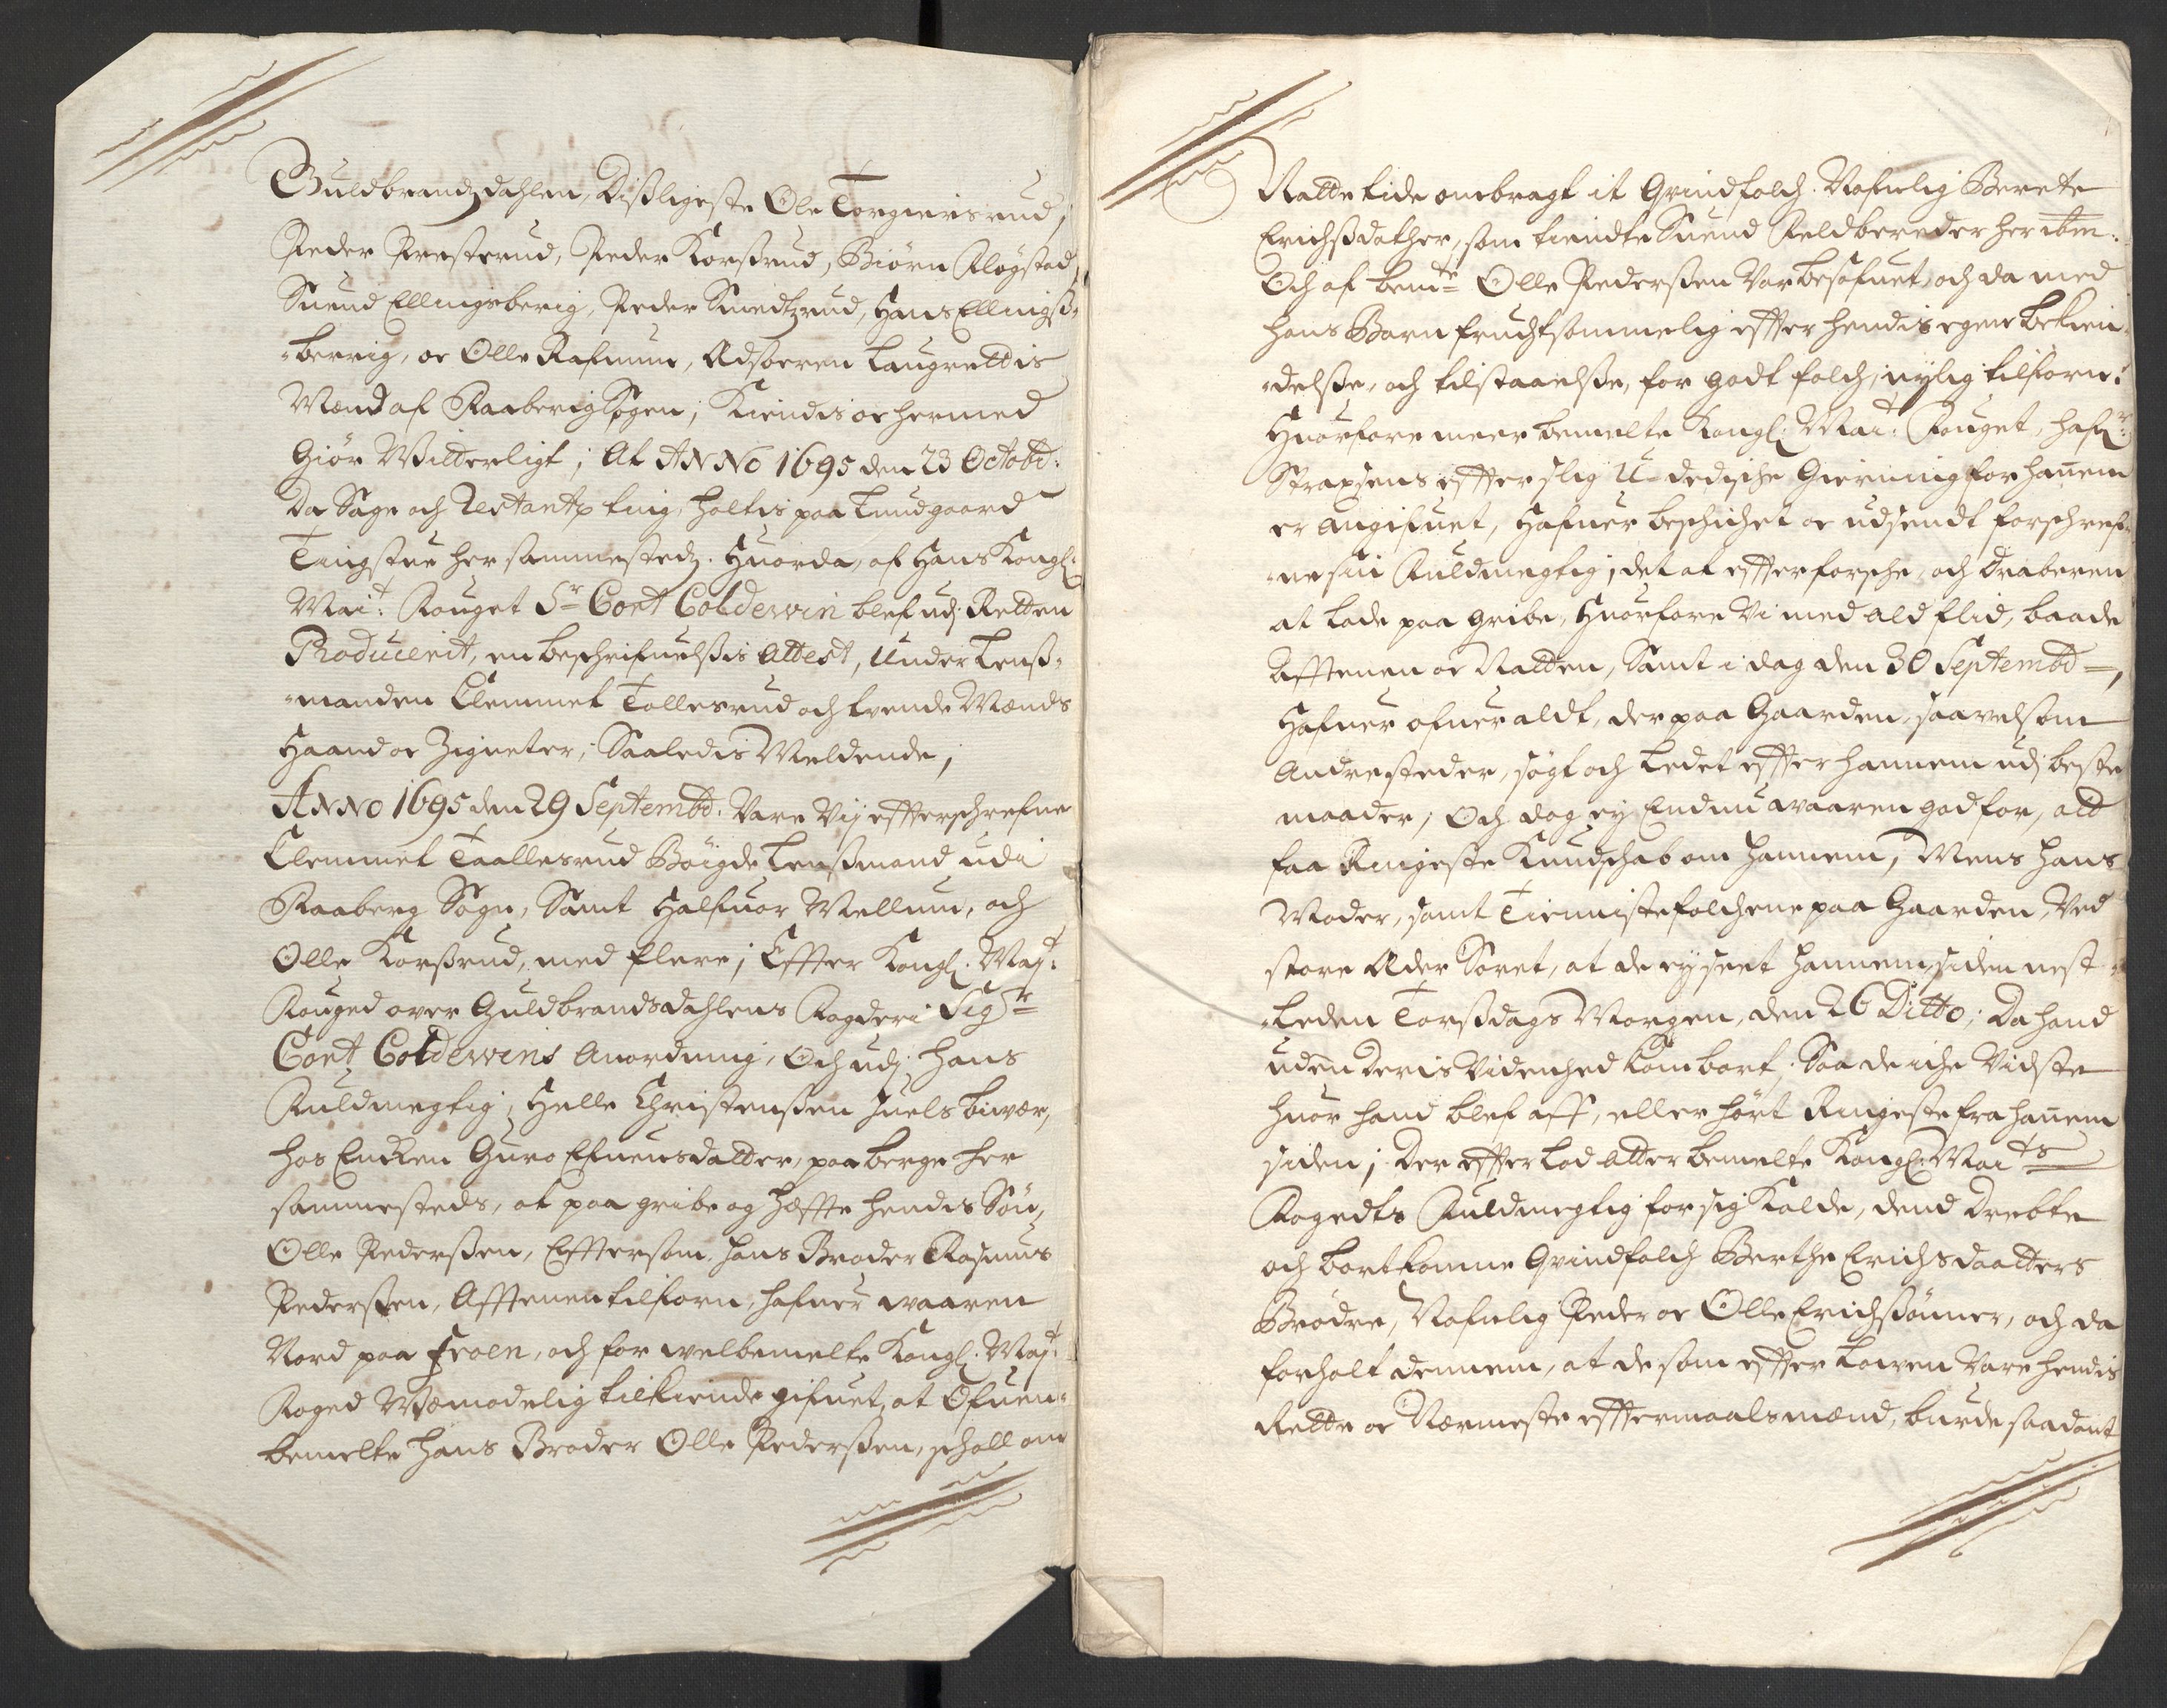 Guldbrandzdahlen, Disligeste Ole Torgiersrud,
Peder Presterud, Peder Korßrud, Biørn Fløgstad,
Suend Ellingsberig, Peder Smedtzrud, Hans Ellingß-
-berrig, oc Olle Rafnum, Edsoeren Laugrettis
Mænd af Faaberig Sogen; Kiendis oc hermed
Giør Witterligt; At ANNO 1695 den 23 Octobr:
Da Sage och Restantz ting, holtis paa Lundgaard
Tingstue her sammestedz. Huor da, af Hans Kongl:
Mai:t Fouget Sr Cort Coldewin blef udj Retten
Producerit, en beschrifuelßis Attest, under Lenß-
-manden Clemmet Tollesrud och tvende Mænds
Haand oc Zigneter, Saaledis Meldende;
ANNO 1695 den 29 Septembr. Vare Vij effterschrefne
Clemmet Taallesrud Böigde Lenßmand udi
Faaberg Sogn, Samt Halfuor Mellum, och
Olle Korßrud, med flere; Effter Kongl. Maj:t
Fouged over Guldbrandsdahlens Fogderi Sigr
Cort Coldewins Anordning, Och udj hans
Fuldmegtig, Helle Christenßen Juels biværr,
hos Encken Guro Efuensdatter, paa berge her
sammesteds, at paa gribe og hæffte hendis Søn,
Olle Pederßen, Efftersom hans Broder Rasmus
Pederßen, Afftenen tilforn, hafuer waaren
Nord paa Froen, och for welbemelte Kongl. Maj:t
Foged Wemodelig tilkiende gifuet, at Ofuen-
bemelte hans Broder Olle Pederßen, schall om
Natte tide ombragt it Qvindfolch. Nafnlig Berete
Erichßdather, som tiendte Suend Feldbereder her ibm:
Och af bemte Olle Pederßen Var besofuet, och da med
hans Barn fruchtsommelig effter hendis egene bekien-
-delße, och tilstaaelße, for godt folch, nylig tilforn:
Huorfore meer bemelte Kongl. Mai:t Fouget,
Straxsens effter slig U-dedische Gierning for hannem
er angifuet, Hafuer beschichet oc udsendt forschref-
-ne sin Fuldmegtig, det at effterforsche, och Draberen
at lade paa gribe, Huorfore Vi med ald flid, baade
Afftenen oc Natten, Samt i dag den 30 Septembr,
Hafuer ofuer aldt, der paa Gaarden, saavelsom
Andresteder, søgt och Ledet effter hannem udj beste
maader, Och dog ey Endnu waaren god for, att
faa Ringeste Kundschab om hannem, Mens hans
Moder, samt Tiennistefolchene paa Gaarden, Ved
store Eder Soret, at de ey seet hannem siden nest
-Leden Torßdags Morgen, den 26 Ditto; Da hand
uden Deris Videnhed kom bort, Saa de iche Vidste
huor hand blef aff, eller hørt Ringeste fra hannem
siden; Der effter lod atter bemelte Kongl: Maits
Fogedts Fuldmegtig for sig Kalde, dend drebte
och bortkomne Qvindfolch Berthe Erichsdaatters
Brødre, Nafnlig Peder oc Olle Erichsønner, och da
forholt dennem, at de som effter Lowen Vare hendis
Rette oc Nærmeste effttermaalsmænd, burde saadant